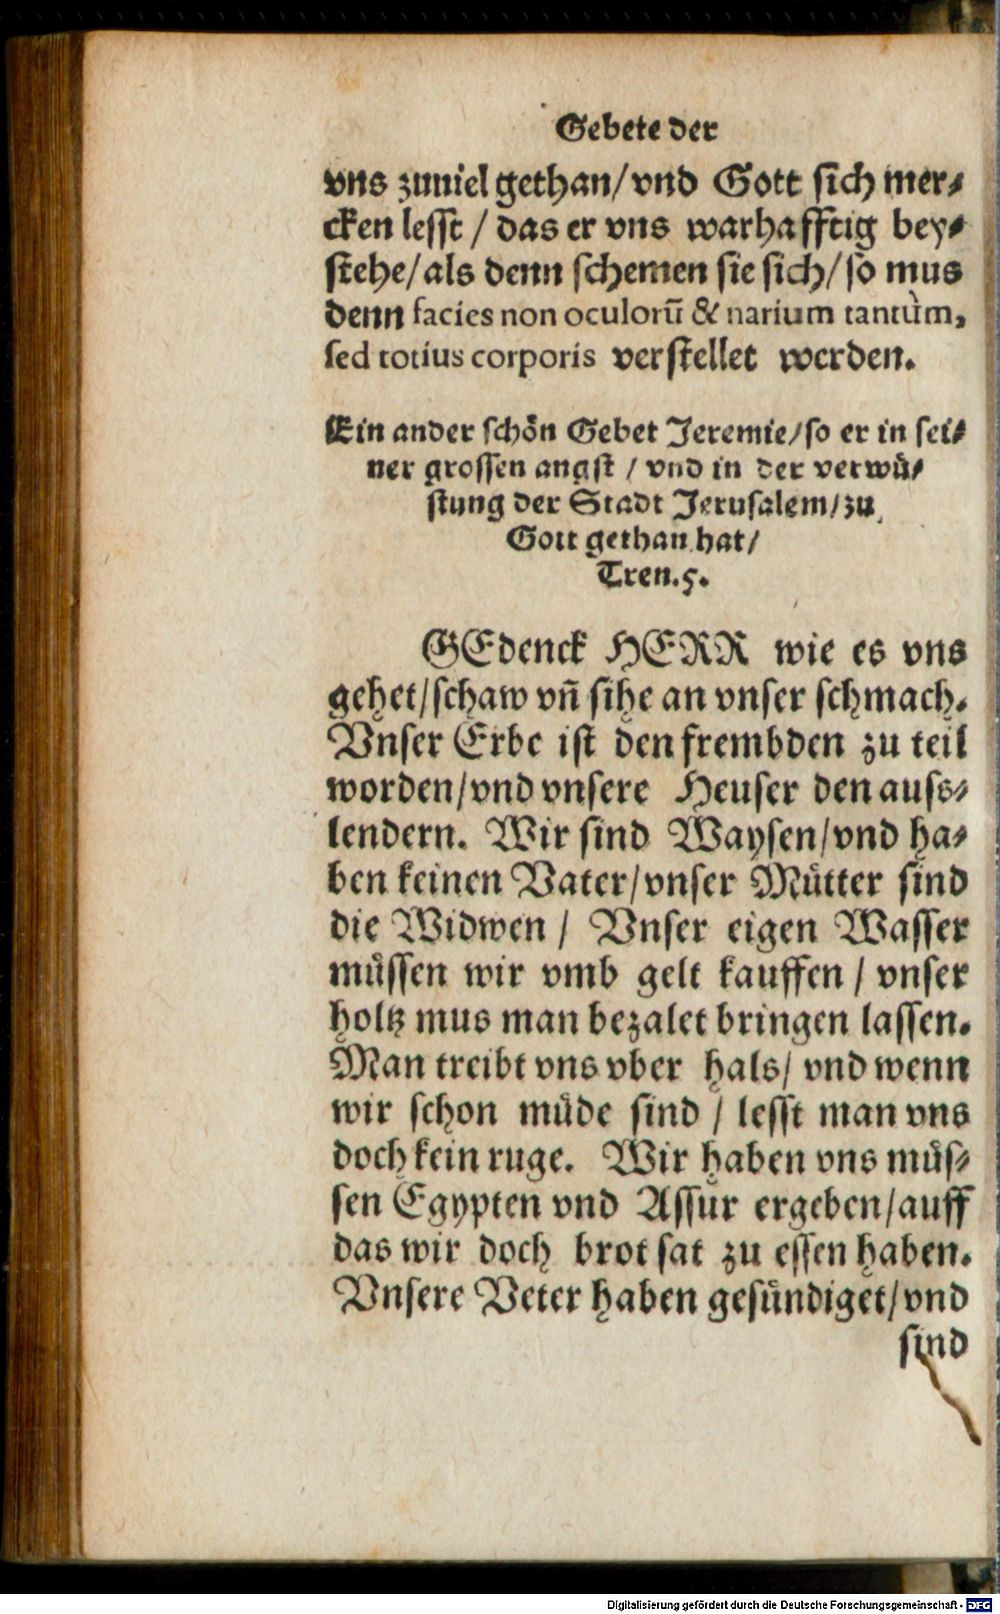 Gebete der
vns zuuiel gethan/vnd Gott sich mer⸗
cken lesst / das er vns warhafftig bey⸗
stehe/als denn schemen sie sich/so mus
denn facies non oculorū & narium tantùm,
sed totius corporis verstellet werden.
Ein ander schön Gebet Jeremie/so er in sei⸗
ner grossen angst / vnd in der verwü⸗
stung der Stadt Jerusalem/zu
Gott gethan hat/
Tren.5.
GEdenck HERR wie es vns
gehet/schaw vn̄ sihe an vnser schmach.
Vnser Erbe ist den frembden zu teil
worden/vnd vnsere Heuser den auss⸗
lendern. Wir sind Waysen/vnd ha⸗
ben keinen Vater/vnser Mütter sind
die Widwen / Vnser eigen Wasser
müssen wir vmb gelt kauffen / vnser
holtz mus man bezalet bringen lassen.
Man treibt vns vber hals/ vnd wenn
wir schon müde sind / lesst man vns
doch kein ruge. Wir haben vns müs⸗
sen Egypten vnd Assur ergeben/auff
das wir doch brot sat zu essen haben.
Vnsere Veter haben gesündiget/vnd
sind
Digitalisierung gefördert durch die Deutsche Forschungsgemeinschaft - DFG